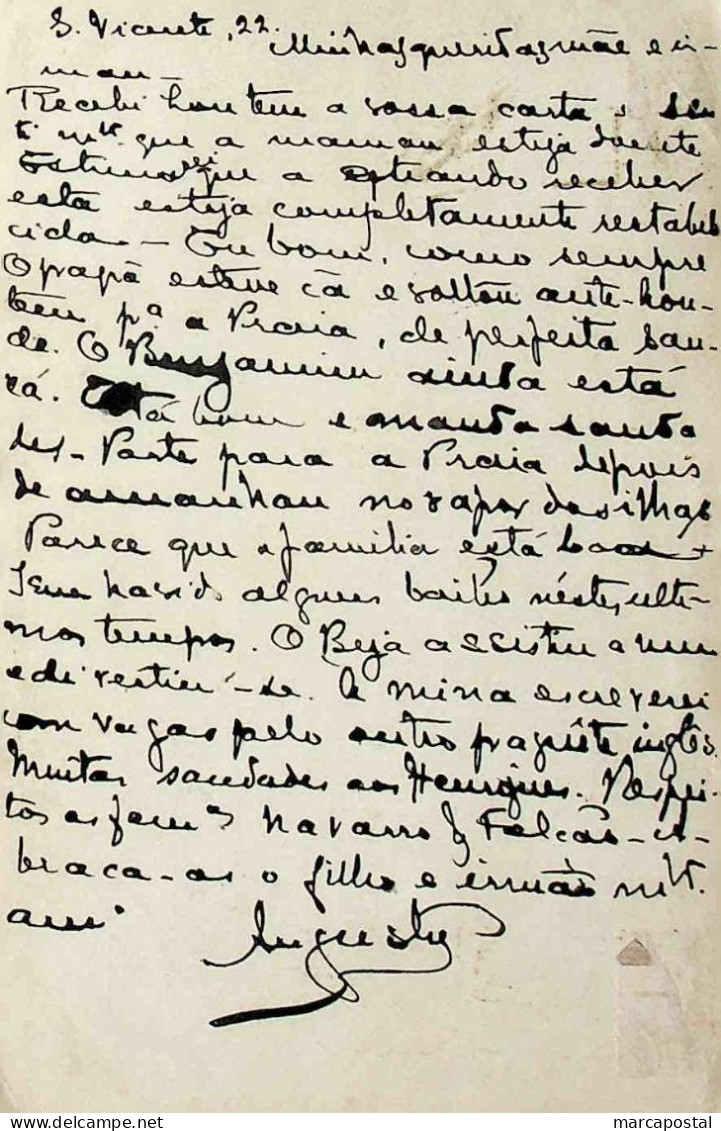 S. Vicente, 22.
Minhas queridas mãe e ir-
man -
Recebi hontem a vossa carta e sen
ti mtº. que a maman esteja doente
Estimarei que a quando receber
esta esteja completamente restabele
cida - Eu bom, como sempre
O papá esteve cá e voltou ante-hon-
tem pª a Praia, de perfeita sau-
de. O Benjamim ainda está
cá. Está bom e manda sauda
des - Parte para a Praia depois
de amanhan no vapor das ilhas
Parece que a familia está boa +
Tem havido alguns bailes néstes ulti-
mos tempos. O Beja assistiu a um
e divertiu-se. A mina escreverei
com vagar pelo outro paquête inglês.
Muitas saudades aos Henriques. Respei-
tos ás famas Navarro & Falcão - a-
braça-as o filho e irmão mtº.
amº
Augusto
marcapostal